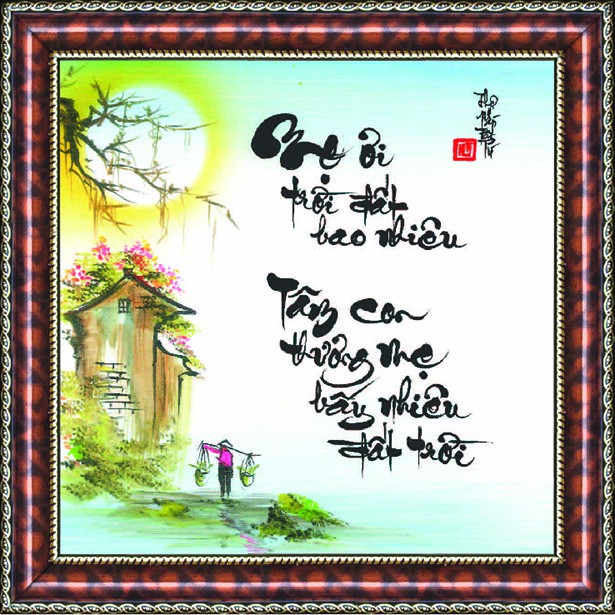 Mẹ ơi
trời đất
bao nhiêu
Tâm con
thương mẹ
bấy nhiêu
đất trời